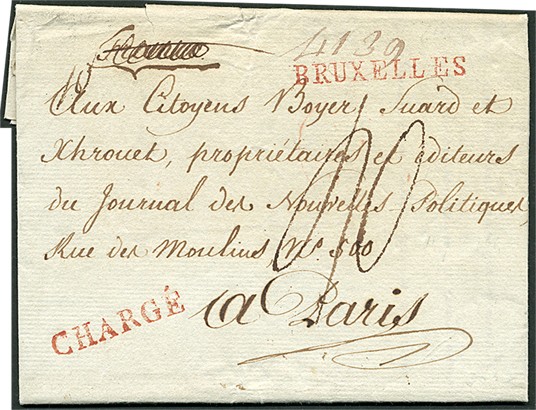 4139
BRUXELLES
Aux Citoyens Boyer, Suard et
Xhrouet, propriétaires et éditeurs
du Journal des Nouvelles Politiques,
Rue des Moulins N.º 500
a Paris
CHARGÉ